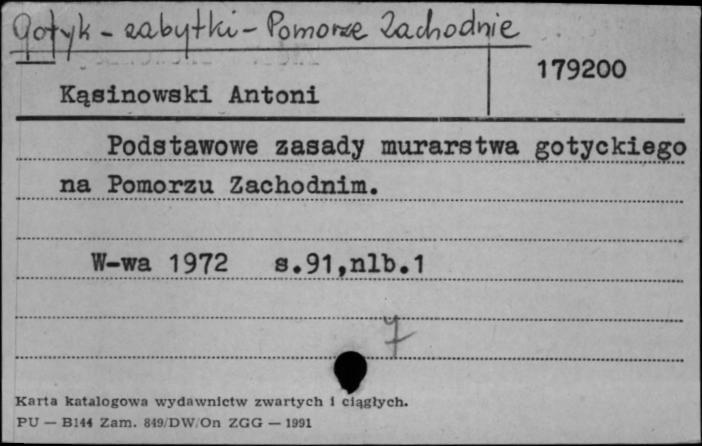 Gotyk - zabytki - Pomorze Zachodnie
179200
Kąsinowski Antoni
Podstawowe zasady murarstwa gotyckiego
na Pomorzu Zachodnim.
W-wa 1972 s.91,nlb.1
7
Karta katalogowa wydawnictw zwartych i ciągłych.
PU — B144 Zam. 849/DW/On ZGG — 1991